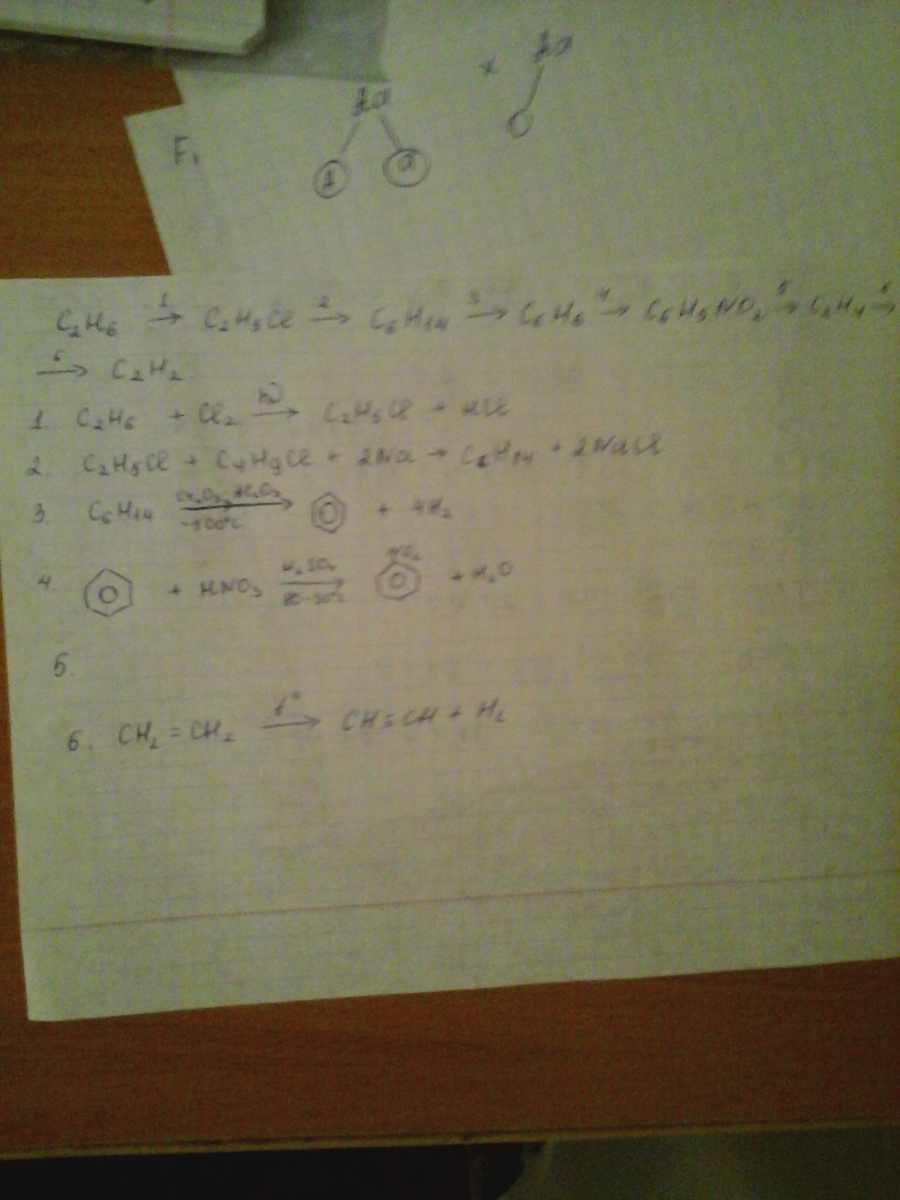 Aa
x Aa
F₁
A a
C₂H₆ —1→ C₂H₅Cl —2→ C₆H₁₄ —3→ C₆H₆ —4→ C₆H₅NO₂ —5→ C₂H₄ —6→
—6→ C₂H₂
1. C₂H₆ + Cl₂ —hν→ C₂H₅Cl + HCl
2. C₂H₅Cl + C₄H₉Cl + 2Na → C₆H₁₄ + 2NaCl
3. C₆H₁₄ → + 4H₂
4. + HNO₃ —H₂SO₄→ NO₂ + H₂O
5.
6. CH₂ = CH₂ —t°→ CH≡CH + H₂